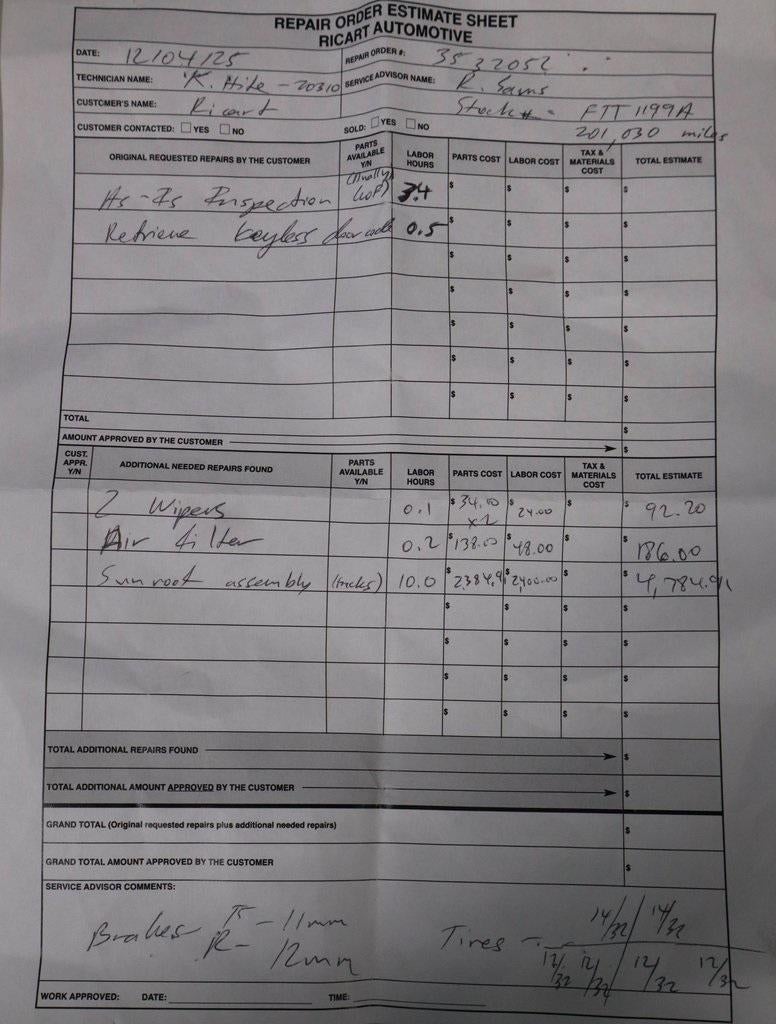 REPAIR ORDER ESTIMATE SHEET
RICART AUTOMOTIVE
DATE: 12/04/25 REPAIR ORDER #: 3532052
TECHNICIAN NAME: K. Hite - 20310 SERVICE ADVISOR NAME: R. Sams
CUSTOMER'S NAME: Ricart Stock # - FTT1199A
CUSTOMER CONTACTED: YES NO SOLD: YES NO 201,030 miles
ORIGINAL REQUESTED REPAIRS BY THE CUSTOMER PARTS AVAILABLE Y/N LABOR HOURS PARTS COST LABOR COST TAX & MATERIALS COST TOTAL ESTIMATE
As-Is Inspection 3.4 $ $ $ $
Retrieve keyless door code 0.5 $ $ $ $
$ $ $ $
$ $ $ $
$ $ $ $
$ $ $ $
$ $ $ $
TOTAL $
AMOUNT APPROVED BY THE CUSTOMER $
CUST. APPR. Y/N ADDITIONAL NEEDED REPAIRS FOUND PARTS AVAILABLE Y/N LABOR HOURS PARTS COST LABOR COST TAX & MATERIALS COST TOTAL ESTIMATE
2 Wipers 0.1 $34.10 x2 $24.00 $ $92.20
Air filter 0.2 $138.00 $48.00 $ $186.00
Sunroof assembly (tracks) 10.0 $2384.91 $2400.00 $ $4,784.91
$ $ $ $
$ $ $ $
$ $ $ $
$ $ $ $
TOTAL ADDITIONAL REPAIRS FOUND $
TOTAL ADDITIONAL AMOUNT APPROVED BY THE CUSTOMER $
GRAND TOTAL (Original requested repairs plus additional needed repairs) $
GRAND TOTAL AMOUNT APPROVED BY THE CUSTOMER $
SERVICE ADVISOR COMMENTS:
Brakes F - 11mm Tires - 14/32 14/32
R - 12mm 12/32 12/32 12/32 12/32
WORK APPROVED: DATE: TIME: